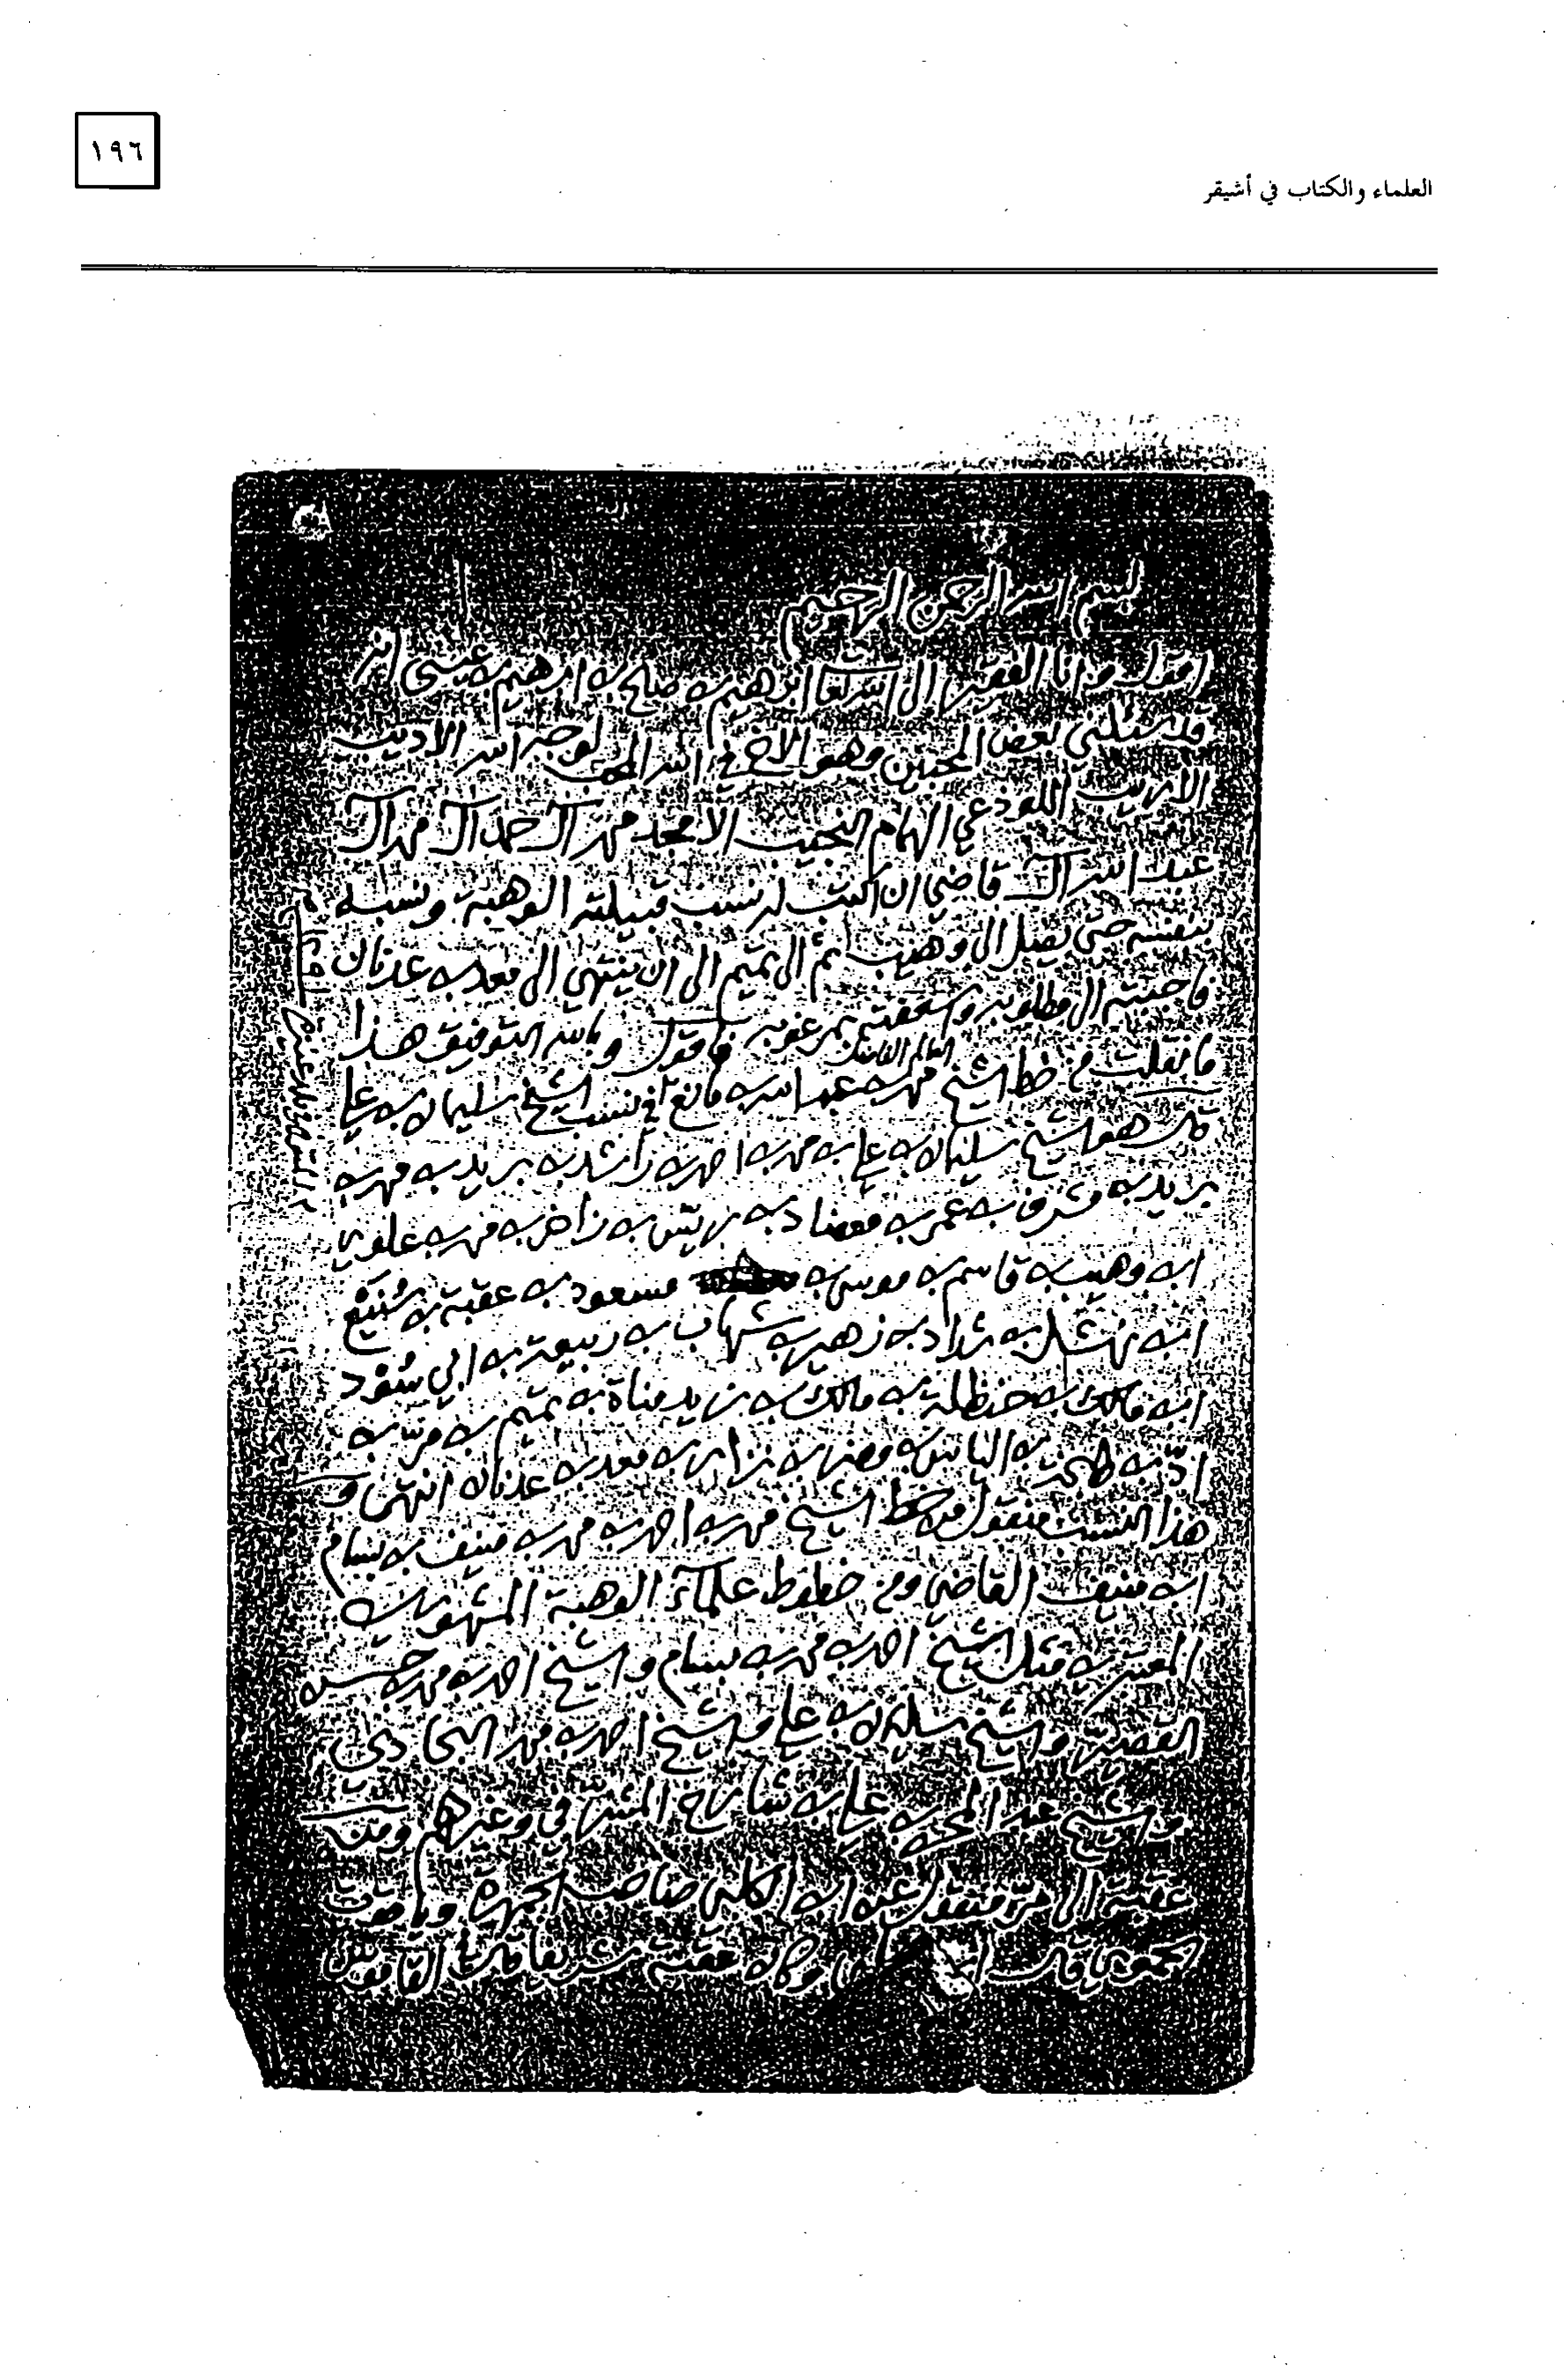 ١٩٦
العلماء والكتاب في أشيقر
بسم الله الرحمن الرحيم
اقول وانا الفقير الى الله تعا ابرهيم بن صلح بن ابرهيم بن عيسى انه
قد سئلني بعض المحبين وهو الاخ في الله المحب لوجه الله الاديب
الاريب اللوذعي الهمام النجيب الامجد محمد آل حمد آل محمد آل
عبد الله آل قاضي ان اكتب له نسب قبيلته الوهبة ونسبه
بنفسه حتى يصل الى وهيب ثم الى تميم الى ان ينتهي الى معد بن عدنان
فاجبته الى مطلوبه واسعفته بمرغوبه فاقول وبالله التوفيق هذا
ما نقلت من خط الشيخ العالم الفاضل محمد بن عبد الله بن مانع في نسب الشيخ سليمان بن علي
قال هو الشيخ سليمان بن علي بن محمد بن احمد بن راشد بن بريد بن محمد بن
بريد بن مشرف بن عمر بن معضاد بن ريس بن زاخر بن محمد بن علوي
ابن وهيب بن قاسم بن موسى بن مسعود بن عقبة بن سُنَيْع
ابن نهشل بن شداد بن زهير بن شهاب بن ربيعة بن ابي سُوْد
ابن مالك بن حنظلة بن مالك بن زيد مناة بن تميم بن مرّ بن
ادّ بن طابخة بن الياس بن مضر بن نزار بن معد بن عدنان انتهى و
هذا النسب منقول من خط الشيخ محمد بن احمد بن محمد بن منيف بن بسام
ابن منيف القاضي ومن خطوط علماء الوهبة المشهورين
المعتبرين مثل الشيخ احمد بن محمد بن بسام والشيخ احمد بن محمد بن حسن
القصير والشيخ سليمان بن علي والشيخ احمد بن محمد البجادي
والشيخ عبد المحسن بن علي بن شارخ المشرفي وغيرهم ومن
عقبة الى مرّ منقول عن ابن الكلبي صاحب الجمهرة وياقوت
الحموي قال وكان عقبة شريفا قال القاموس